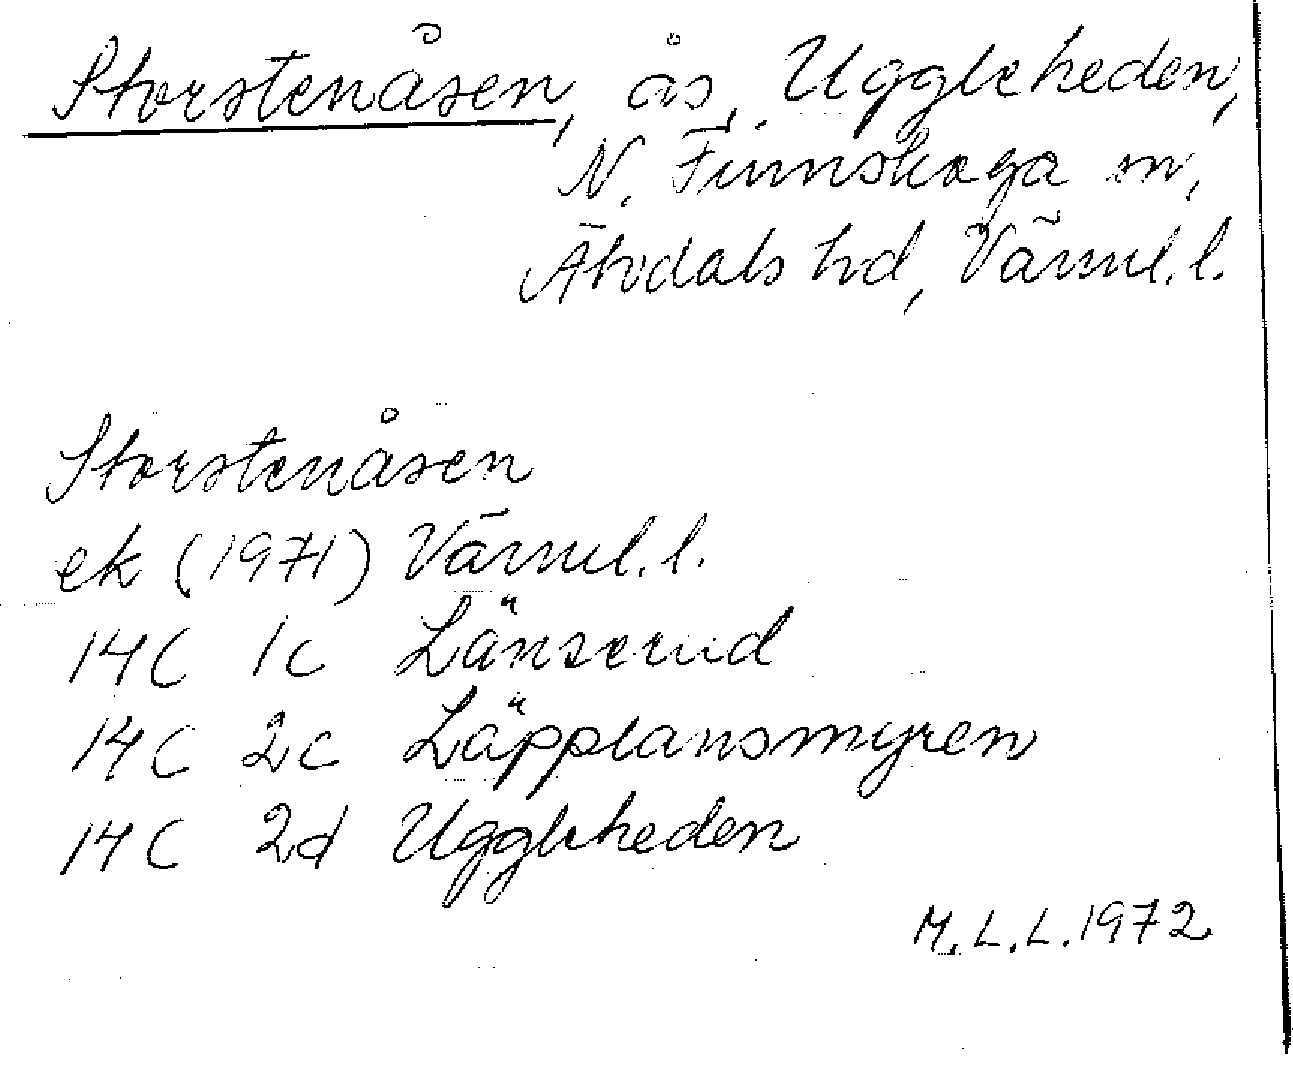 Storstenåsen, ås, Uggleheden,
N. Finnskoga sn,
Älvdals hd, Värml. l.
Storstenåsen
ek (1971) Värml. l.
14C 1c Länserud
14C 2c Läpplansmyren
14C 2d Uggleheden
M.L.L. 1972